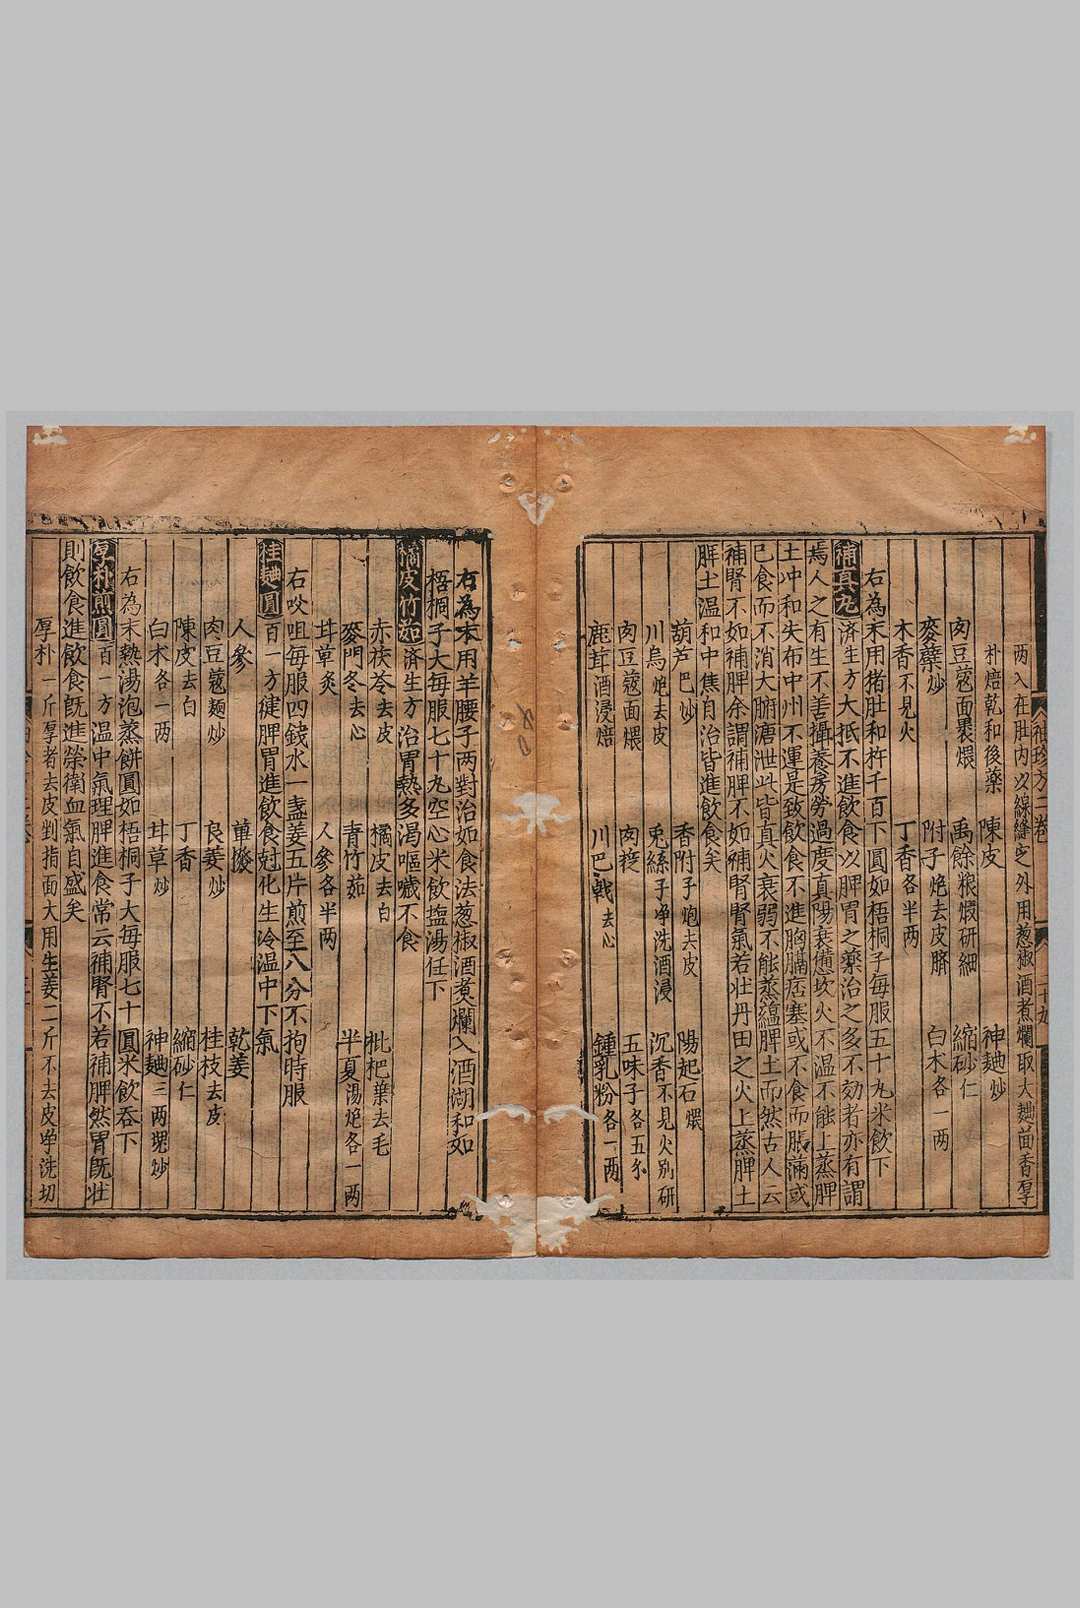 两入在肚内以線縫之外用葱椒酒煮爛取大麺茴香厚
朴焙乾和後藥 陳皮 神麯炒
肉豆蔻面裹煨 禹餘粮煅研細 縮砂仁
麥蘖炒 附子炮去皮臍 白术各一两
木香不見火 丁香各半两
右為末用猪肚和杵千百下圓如梧桐子每服五十丸米飲下
補真丸 济生方大抵不進飲食以脾胃之藥治之多不効者亦有謂
焉人之有生不善攝養房勞過度真陽衰憊坎火不温不能上蒸脾
土冲和失布中州不運是致飲食不進胸膈痞塞或不食而脹滿或
已食而不消大腑溏泄此皆真火衰弱不能蒸蕴脾土而然古人云
補腎不如補脾余謂補脾不如補腎腎氣若壮丹田之火上蒸脾土
脾土温和中焦自治皆進飲食矣
葫芦巴炒 香附子炮去皮 陽起石煨
川烏炮去皮 兎絲子净洗酒浸 沉香不見火别研
肉豆蔻面煨 肉蓯 五味子各五分
鹿茸酒浸焙 川巴戟去心 鍾乳粉各一两
袖珍方二卷
右為末用羊腰子两對治如食法葱椒酒煑爛入酒湖和如
梧桐子大每服七十丸空心米飲塩湯任下
橘皮竹茹 济生方治胃熱多渴嘔噦不食
赤茯苓去皮 橘皮去白 枇杷葉去毛
麥門冬去心 青竹茹 半夏湯炮各一两
甘草炙 人參各半两
右㕮咀每服四錢水一盞姜五片煎至八分不拘時服
桂麯圓 百一方健脾胃進飲食尅化生冷温中下氣
人參 蓽撥 乾姜
肉豆蔻麺炒 良姜炒 桂枝去皮
陳皮去白 丁香 縮砂仁
白术各一两 甘草炒 神麯三两炒
右為末熱湯泡蒸餅圓如梧桐子大每服七十圓米飲吞下
厚朴煎圓 百一方温中氣理脾進食常云補腎不若補脾然胃既壮
則飲食進飲食既進榮衛血氣自盛矣
厚朴一斤厚者去皮剉指面大用生姜二斤不去皮净洗切